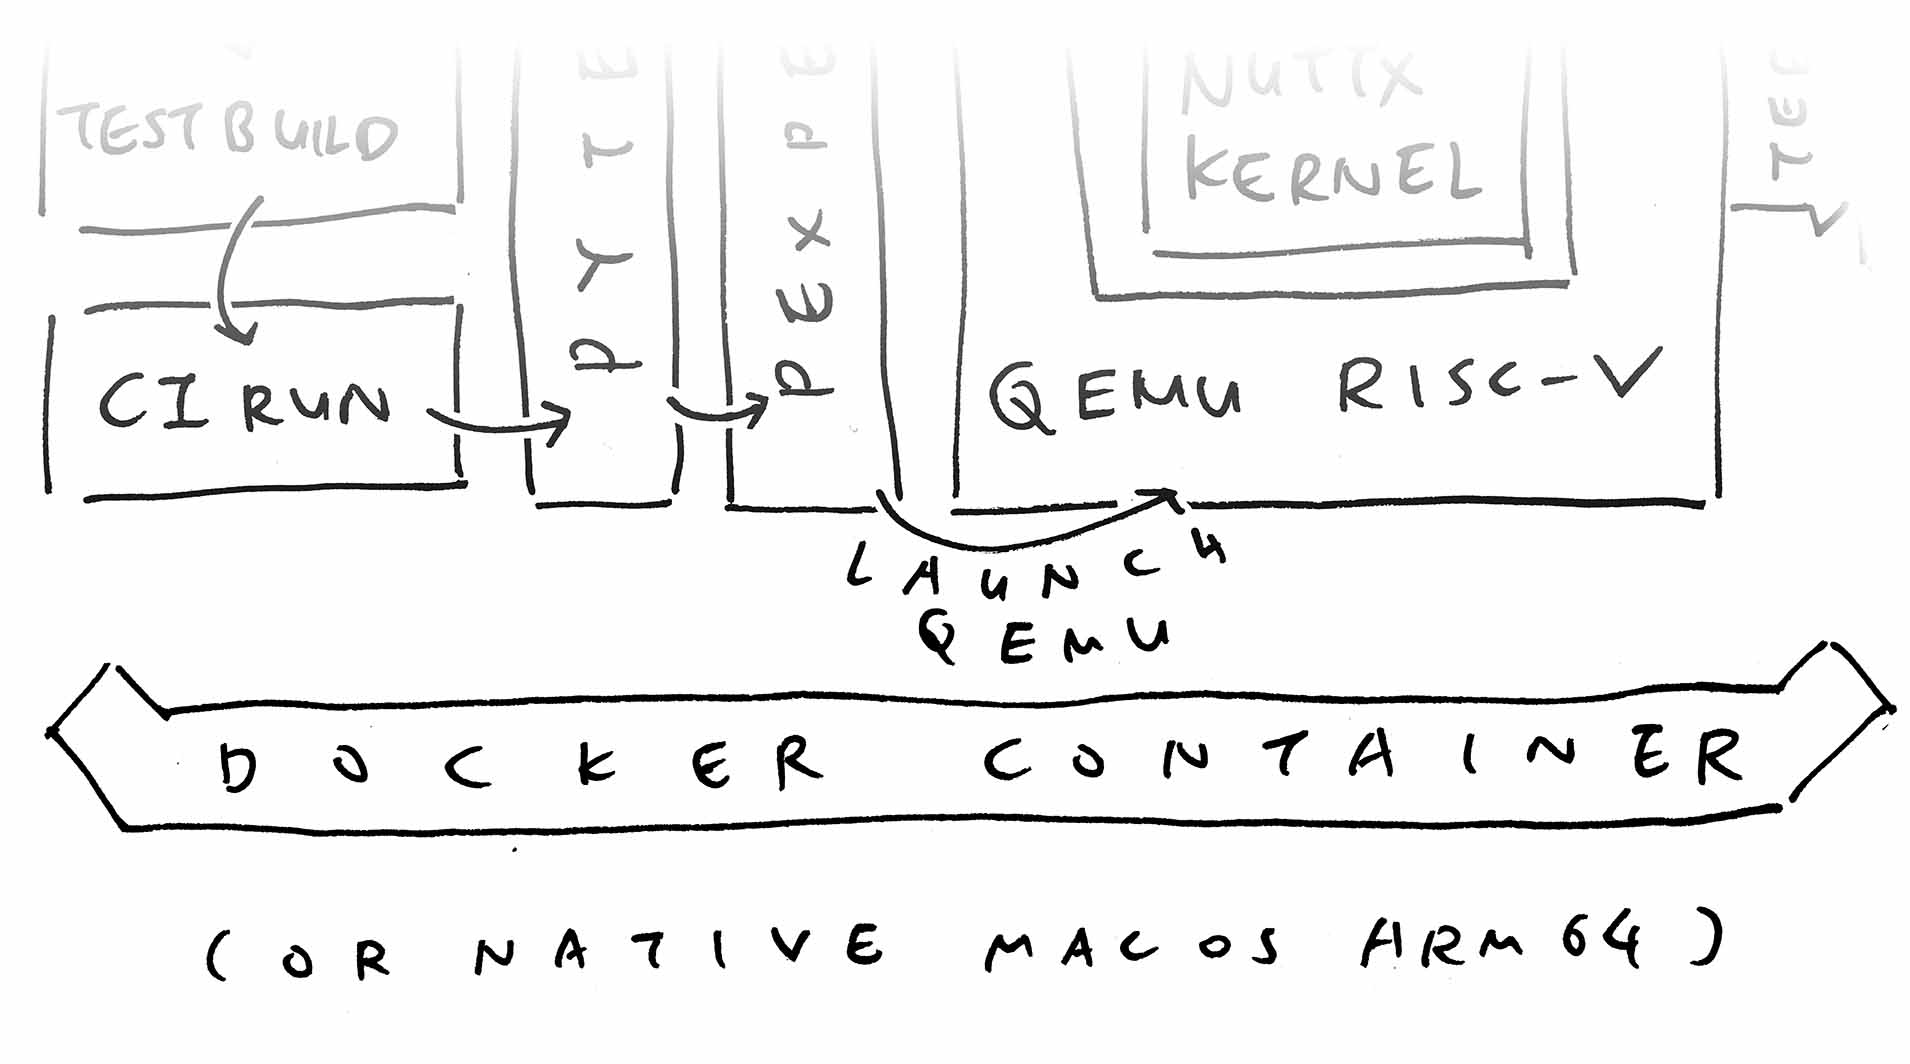 TESTBUILD
CI RUN
PYTE
PEXPE
NUTTX
KERNEL
QEMU RISC-V
LAUNCH
QEMU
DOCKER CONTAINER
(OR NATIVE MACOS ARM64)